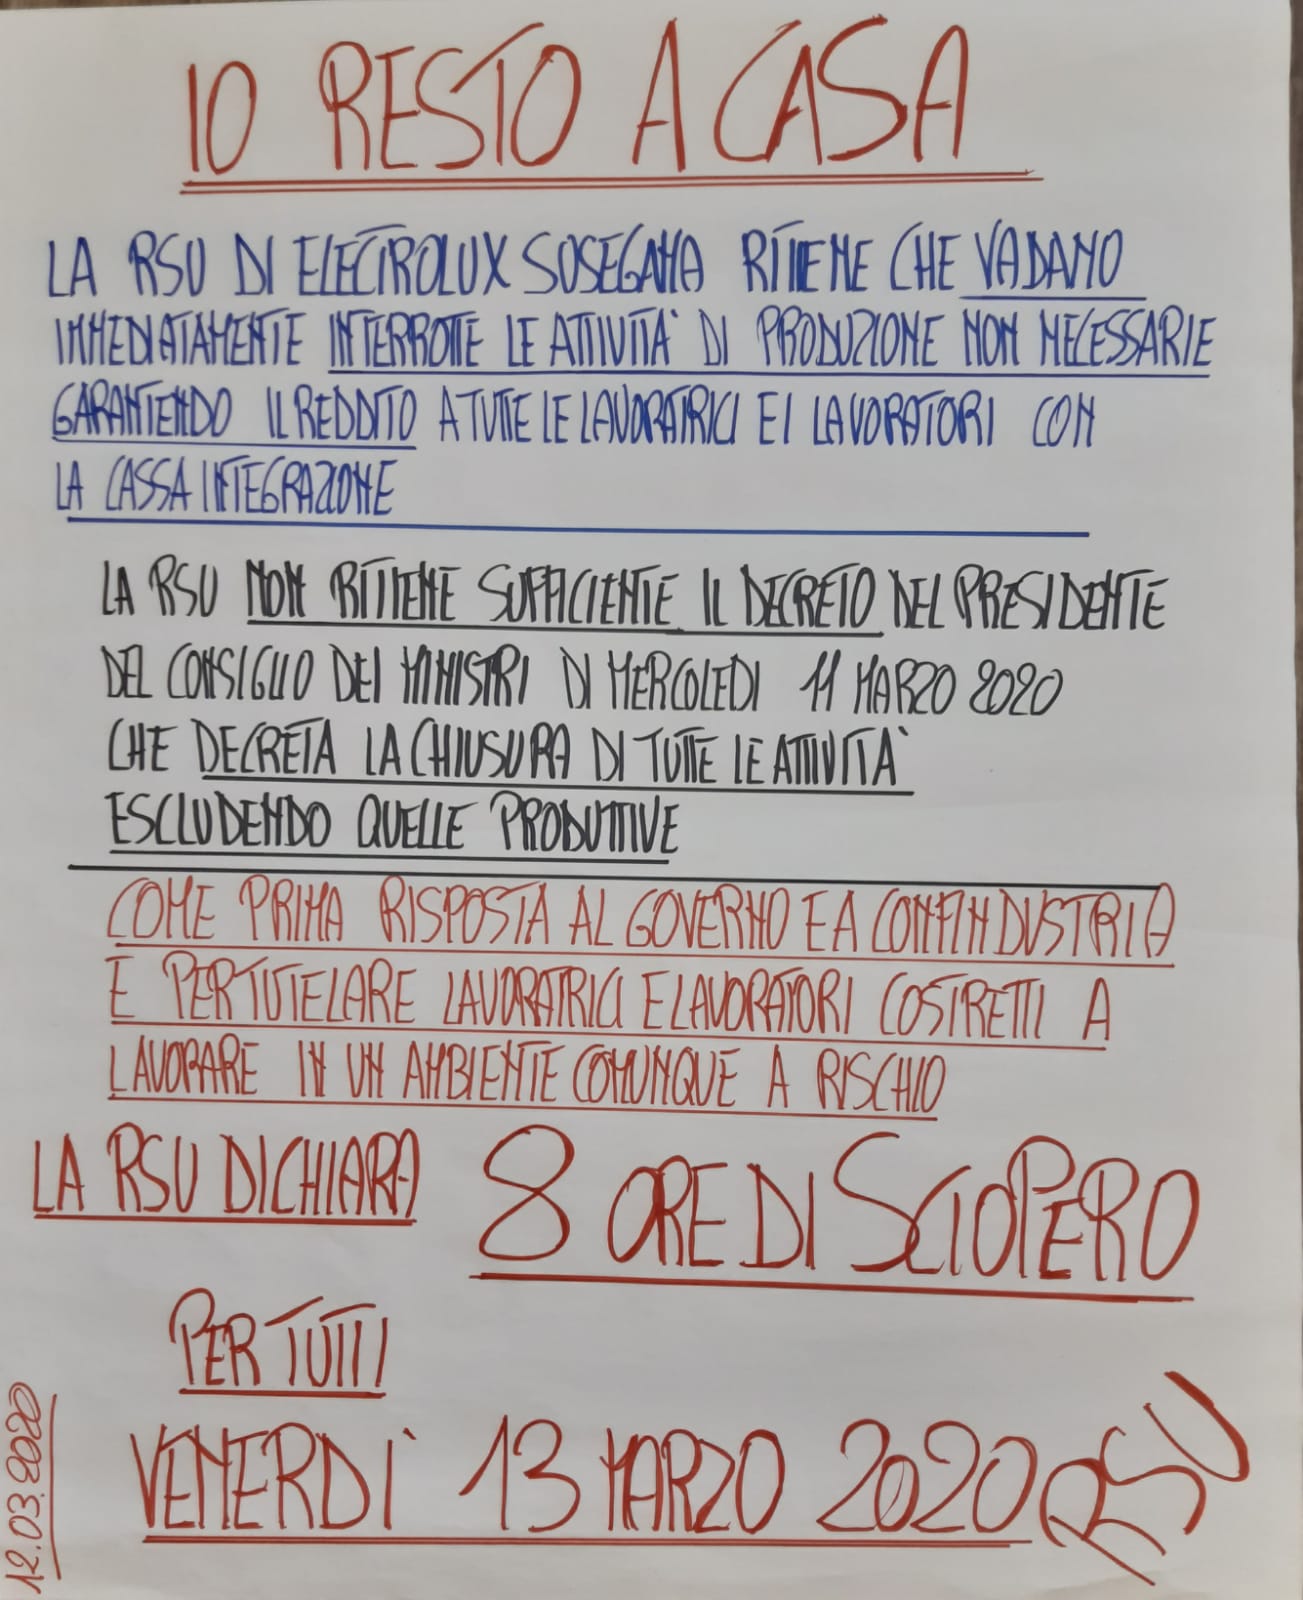 IO RESTO A CASA
LA RSU DI ELECTROLUX SUSEGANA RITIENE CHE VADANO
IMMEDIATAMENTE INTERROTTE LE ATTIVITA' DI PRODUZIONE NON NECESSARIE
GARANTENDO IL REDDITO A TUTTE LE LAVORATRICI E I LAVORATORI CON
LA CASSA INTEGRAZIONE
LA RSU NON RITIENE SUFFICIENTE IL DECRETO DEL PRESIDENTE
DEL CONSIGLIO DEI MINISTRI DI MERCOLEDI 11 MARZO 2020
CHE DECRETA LA CHIUSURA DI TUTTE LE ATTIVITA'
ESCLUDENDO QUELLE PRODUTTIVE
COME PRIMA RISPOSTA AL GOVERNO E A CONFINDUSTRIA
E PER TUTELARE LAVORATRICI E LAVORATORI COSTRETTI A
LAVORARE IN UN AMBIENTE COMUNQUE A RISCHIO
LA RSU DICHIARA 8 ORE DI SCIOPERO
PER TUTTI
VENERDI' 13 MARZO 2020 RSU
12.03.2020